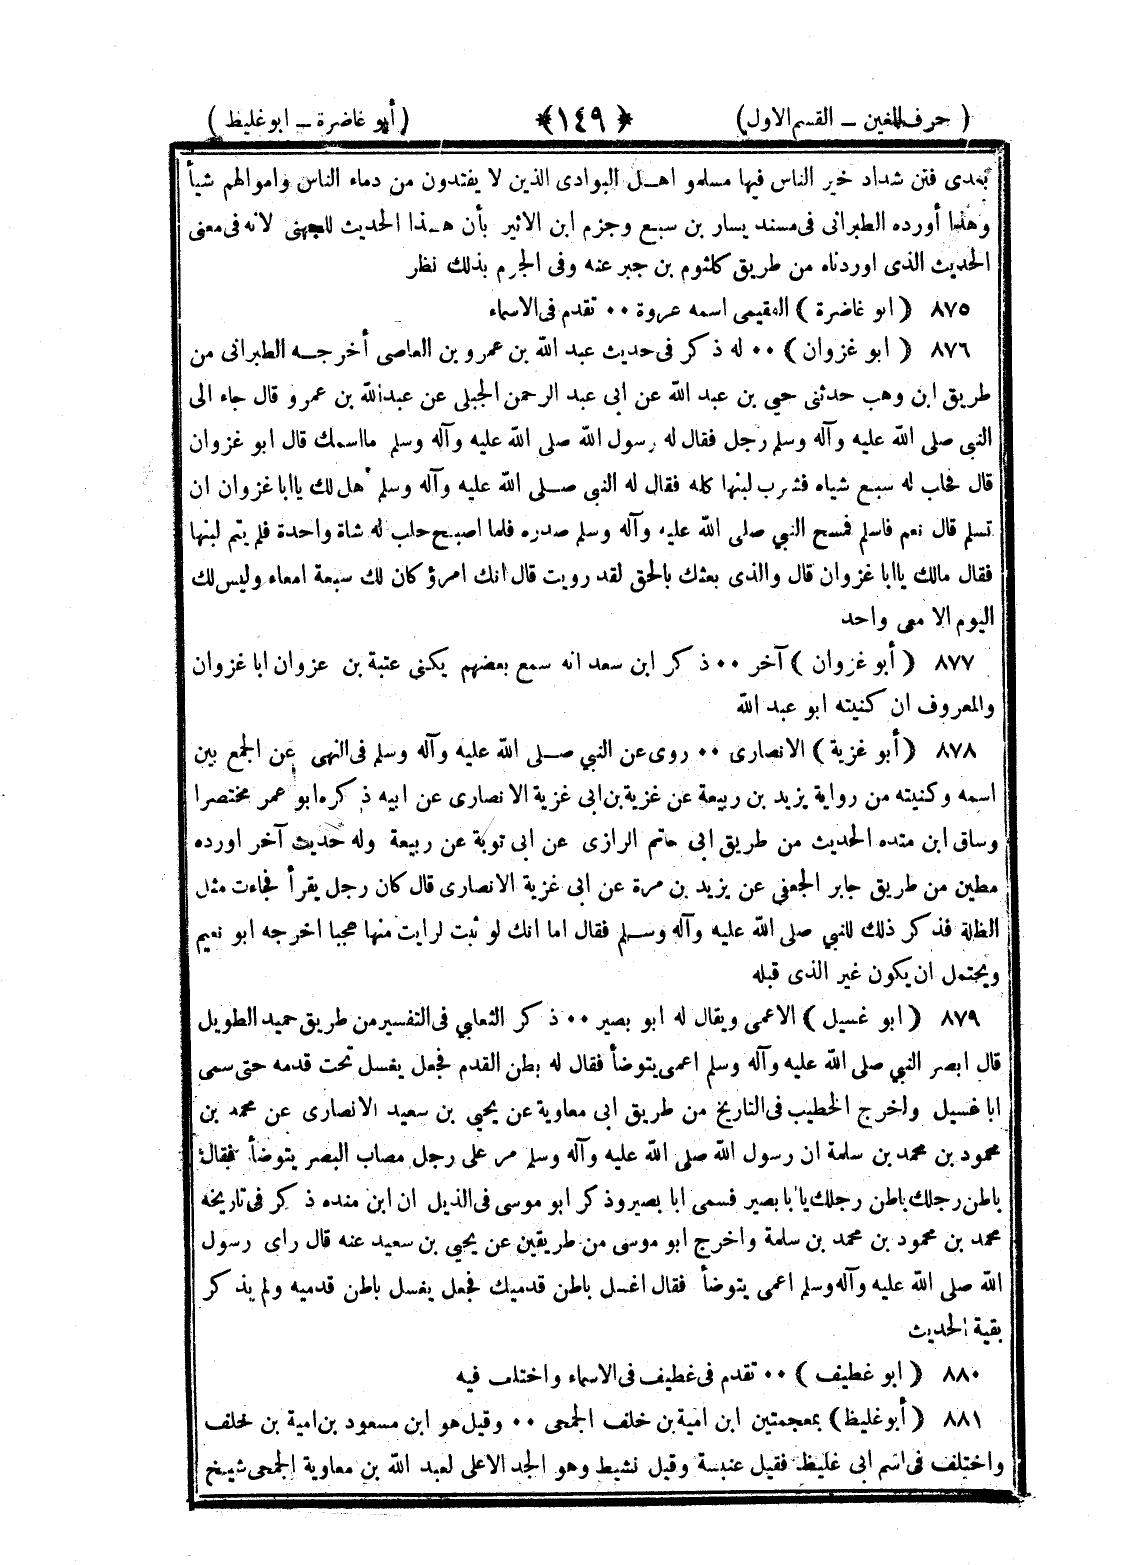 ( حرف الغين – القسم الاول ) ﴿ ١٤٩ ﴾ ( أبو غاضرة – ابو غليظ )
بعدى فتن شداد خير الناس فيها مسلمو اهل البوادى الذين لا يفتدون من دماء الناس واموالهم شيأ
وهكذا أورده الطبرانى فى مسند يسار بن سبع وجزم ابن الاثير بأن هذا الحديث للجهنى لانه فى معنى
الحديث الذى اوردناه من طريق كلثوم بن جبر عنه وفى الجزم بذلك نظر
٨٧٥ ( ابو غاضرة ) الفقيمى اسمه عروة ٠٠ تقدم فى الاسماء
٨٧٦ ( ابو غزوان ) ٠٠ له ذكر فى حديث عبد الله بن عمرو بن العاصى أخرجه الطبرانى من
طريق ابن وهب حدثنى حيي بن عبد الله عن ابى عبد الرحمن الجبلى عن عبدالله بن عمرو قال جاء الى
النبى صلى الله عليه وآله وسلم رجل فقال له رسول الله صلى الله عليه وآله وسلم مااسمك قال ابو غزوان
قال فحلب له سبع شياه فشرب لبنها كله فقال له النبى صلى الله عليه وآله وسلم هل لك ياابا غزوان ان
تسلم قال نعم فاسلم فمسح النبي صلى الله عليه وآله وسلم صدره فلما اصبح حلب له شاة واحدة فلم يتم لبنها
فقال مالك ياابا غزوان قال والذى بعثك بالحق لقد رويت قال انك امرؤ كان لك سبعة امعاء وليس لك
اليوم الا معى واحد
٨٧٧ ( أبو غزوان ) آخر ٠٠ ذكر ابن سعد انه سمع بعضهم يكنى عتبة بن غزوان ابا غزوان
والمعروف ان كنيته ابو عبد الله
٨٧٨ ( أبو غزية ) الانصارى ٠٠ روى عن النبي صلى الله عليه وآله وسلم فى النهى عن الجمع بين
اسمه وكنيته من رواية يزيد بن ربيعة عن غزية بن ابى غزية الانصارى عن ابيه ذكره ابو عمر مختصرا
وساق ابن منده الحديث من طريق ابى حاتم الرازى عن ابى توبة عن ربيعة وله حديث آخر اورده
مطين من طريق جابر الجعفى عن يزيد بن مرة عن ابى غزية الانصارى قال كان رجل يقرأ فجاءت مثل
الظلة فذكر ذلك للنبي صلى الله عليه وآله وسلم فقال اما انك لو ثبت لرايت منها عجبا اخرجه ابو نعيم
ويحتمل ان يكون غير الذى قبله
٨٧٩ ( ابو غسيل ) الاعمى ويقال له ابو بصير ٠٠ ذكر الثعلبي فى التفسير من طريق حميد الطويل
قال ابصر النبي صلى الله عليه وآله وسلم اعمى يتوضأ فقال له بطن القدم فجعل يغسل تحت قدمه حتى سمى
ابا غسيل واخرج الخطيب فى التاريخ من طريق ابى معاوية عن يحيي بن سعيد الانصارى عن محمد بن
محمود بن محمد بن سلمة ان رسول الله صلى الله عليه وآله وسلم مر على رجل مصاب البصر يتوضأ فقال
باطن رجلك باطن رجلك يا ابا بصير فسمى ابا بصير وذكر ابو موسى فى الذيل ان ابن منده ذكر فى تاريخه
محمد بن محمود بن محمد بن سلمة واخرج ابو موسى من طريقين عن يحيي بن سعيد عنه قال راى رسول
الله صلى الله عليه وآله وسلم اعمى يتوضأ فقال اغسل باطن قدميك فجعل يغسل باطن قدميه ولم يذكر
بقية الحديث
٨٨٠ ( ابو غطيف ) ٠٠ تقدم فى غطيف فى الاسماء واختلف فيه
٨٨١ ( أبو غليظ ) بمعجمتين ابن امية بن خلف الجمحى ٠٠ وقيل هو ابن مسعود بن امية بن خلف
واختلف فى اسم ابى غليظ فقيل عنبسة وقيل نشيط وهو الجد الاعلى لعبد الله بن معاوية الجمحى شيخ